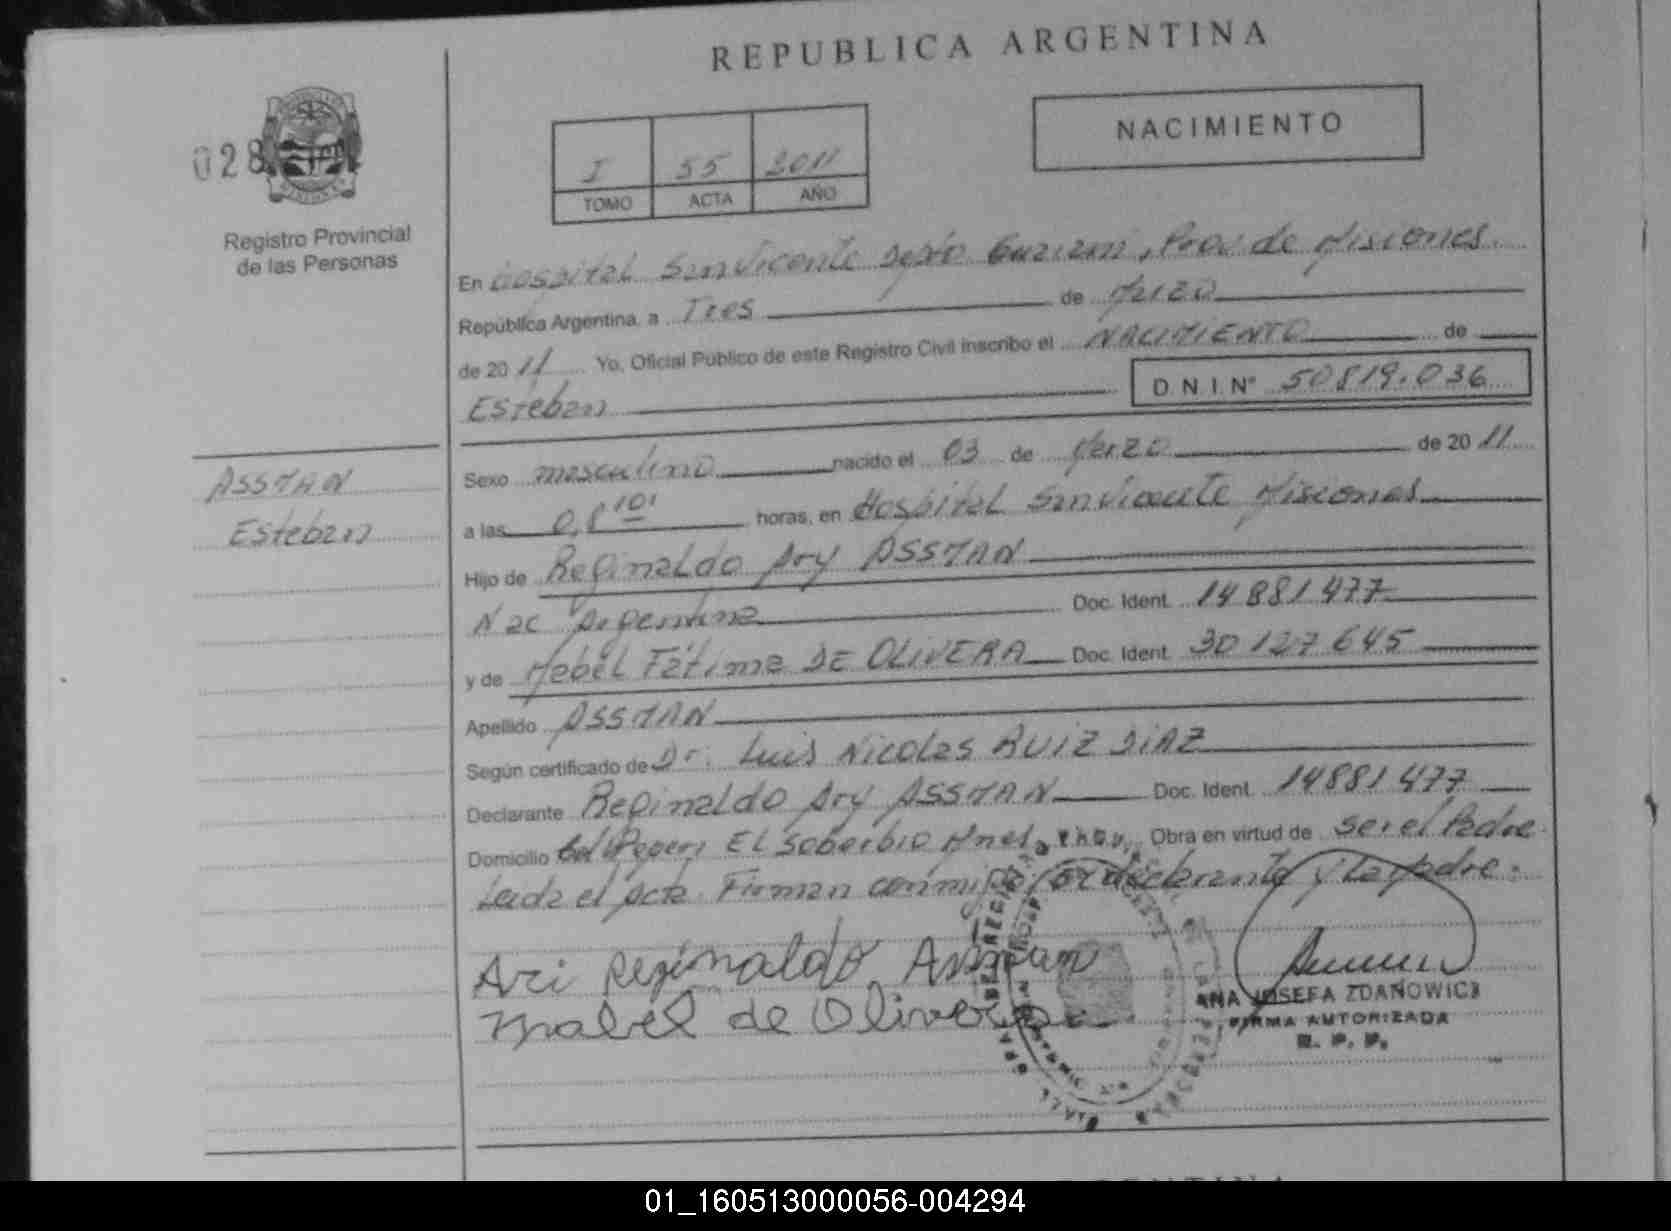 REPUBLICA ARGENTINA
NACIMIENTO
028
I 55 2011
TOMO ACTA AÑO
Registro Provincial
de las Personas
En Hospital San Vicente Depto Guaraní, Prov de Misiones.
República Argentina, a Tres de Marzo
de 2011 Yo, Oficial Público de este Registro Civil inscribo el NACIMIENTO de
Esteban D.N.I. Nº 50819.036
ASSMAN
Esteban
Sexo masculino nacido el 03 de Marzo de 2011
a las 08 10' horas, en Hospital San Vicente Misiones
Hijo de Reginaldo Ary ASSMAN
Nac Argentina Doc. Ident. 14881477
y de Mabel Fátima DE OLIVERA Doc. Ident. 30127645
Apellido ASSMAN
Según certificado de Dr. Luis Nicolas RUIZ DIAZ
Declarante Reginaldo Ary ASSMAN Doc. Ident. 14881477
Domicilio Pepiri El Soberbio Mnes, Obra en virtud de ser el Padre
Leida el Acta Firman conmigo el declarante y la madre.
Ari Reginaldo Assman
Mabel de Olivera
ANA JOSEFA ZDANOWICZ
FIRMA AUTORIZADA
R. P. P.
01_160513000056-004294